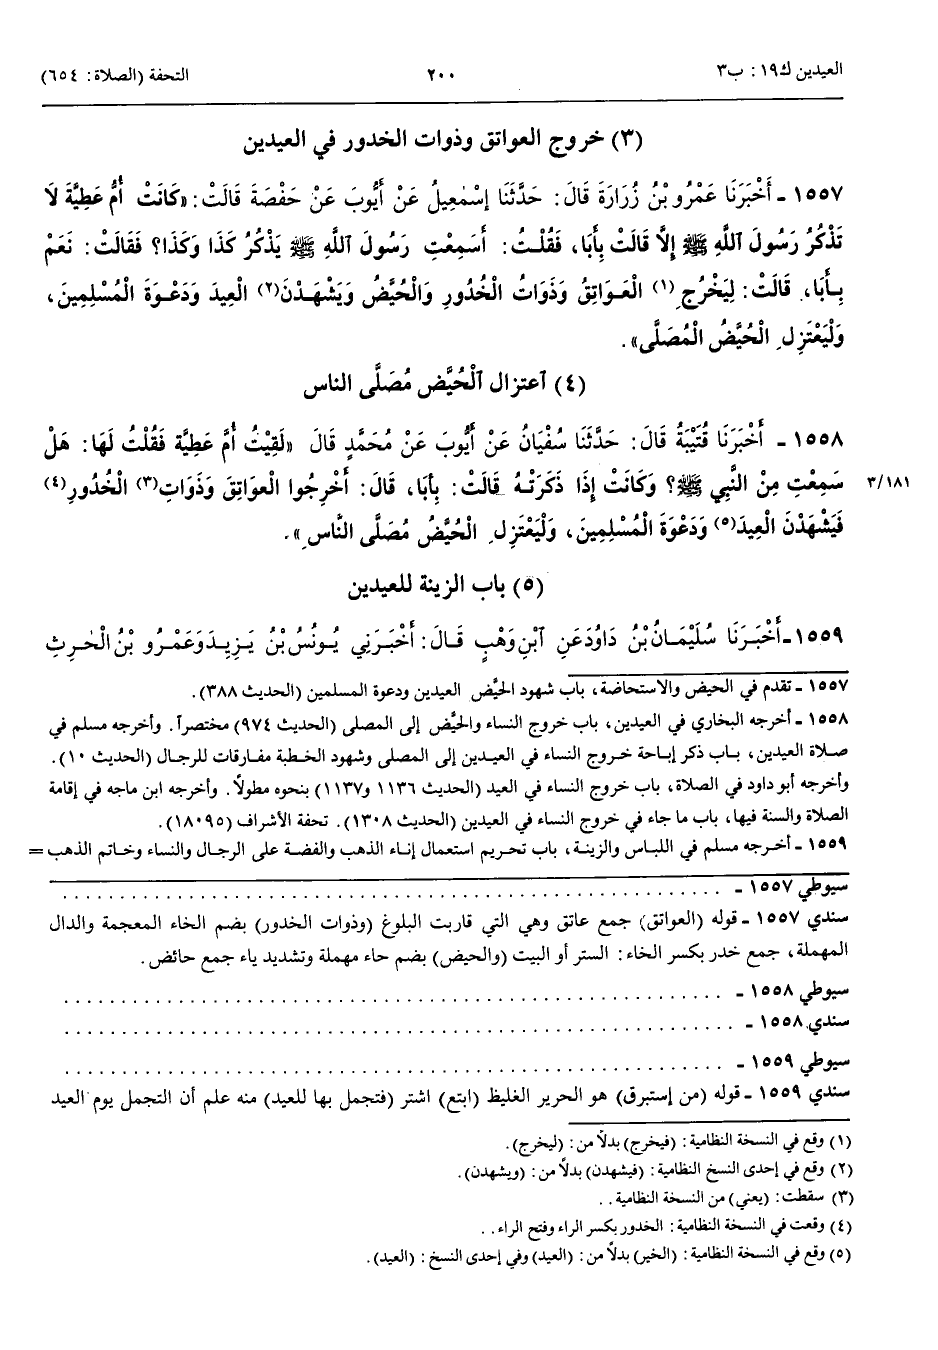 العيدين ك١٩: ب٣
٢٠٠
التحفة (الصلاة: ٦٥٤)
(٣) خروج العواتق وذوات الخدور في العيدين
١٥٥٧ ـ أَخْبَرَنَا عَمْرُو بْنُ زُرَارَةَ قَالَ: حَدَّثَنَا إِسْمٰعِيلُ عَنْ أَيُّوبَ عَنْ حَفْصَةَ قَالَتْ: «كَانَتْ أُمُّ عَطِيَّةَ لَا
تَذْكُرُ رَسُولَ ٱللَّهِ ﷺ إِلَّا قَالَتْ بِأَبَا، فَقُلْتُ: أَسَمِعْتِ رَسُولَ ٱللَّهِ ﷺ يَذْكُرُ كَذَا وَكَذَا؟ فَقَالَتْ: نَعَمْ
بِأَبَا، قَالَتْ: لِيَخْرُجِ(١) الْعَوَاتِقُ وَذَوَاتُ الْخُدُورِ وَالْحُيَّضُ وَيَشْهَدْنَ(٢) الْعِيدَ وَدَعْوَةَ الْمُسْلِمِينَ،
وَلْيَعْتَزِلِ الْحُيَّضُ الْمُصَلَّى».
(٤) ٱعتزال ٱلْحُيَّض مُصَلَّى الناس
١٥٥٨ ـ أَخْبَرَنَا قُتَيْبَةُ قَالَ: حَدَّثَنَا سُفْيَانُ عَنْ أَيُّوبَ عَنْ مُحَمَّدٍ قَالَ «لَقِيْتُ أُمَّ عَطِيَّةَ فَقُلْتُ لَهَا: هَلْ
سَمِعْتِ مِنْ النَّبِيِ ﷺ؟ وَكَانَتْ إِذَا ذَكَرَتْهُ قَالَتْ: بِأَبَا، قَالَ: أَخْرِجُوا الْعَوَاتِقَ وَذَوَاتِ(٣) الْخُدُورِ(٤)
٣/١٨١
فَيَشْهَدْنَ الْعِيدَ(٥) وَدَعْوَةَ الْمُسْلِمِينَ، وَلْيَعْتَزِلِ الْحُيَّضُ مُصَلَّى النَّاسِ».
(٥) باب الزينة للعيدين
١٥٥٩ـأَخْبَرَنَا سُلَيْمَانُ بْنُ دَاوُدَ عَنِ ٱبْنِ وَهْبٍ قَالَ: أَخْبَرَنِي يُونُسُ بْنُ يَزِيدَ وَعَمْرُو بْنُ الْحٰرِثِ
١٥٥٧ ـ تقدم في الحيض والاستحاضة، باب شهود الحُيَّض العيدين ودعوة المسلمين (الحديث ٣٨٨).
١٥٥٨ ـ أخرجه البخاري في العيدين، باب خروج النساء والحُيَّض إلى المصلى (الحديث ٩٧٤) مختصراً. وأخرجه مسلم في
صلاة العيدين، باب ذكر إباحة خروج النساء في العيدين إلى المصلى وشهود الخطبة مفارقات للرجال (الحديث ١٠).
وأخرجه أبو داود في الصلاة، باب خروج النساء في العيد (الحديث ١١٣٦ و١١٣٧) بنحوه مطولاً. وأخرجه ابن ماجه في إقامة
الصلاة والسنة فيها، باب ما جاء في خروج النساء في العيدين (الحديث ١٣٠٨). تحفة الأشراف (١٨٠٩٥).
١٥٥٩ ـ أخرجه مسلم في اللباس والزينة، باب تحريم استعمال إناء الذهب والفضة على الرجال والنساء وخاتم الذهب =
سيوطي ١٥٥٧ ـ . . . . . . . . . . . . . . . . . . . .
سندي ١٥٥٧ ـ قوله (العواتق) جمع عاتق وهي التي قاربت البلوغ (وذوات الخدور) بضم الخاء المعجمة والدال
المهملة، جمع خدر بكسر الخاء: الستر أو البيت (والحيض) بضم حاء مهملة وتشديد ياء جمع حائض.
سيوطي ١٥٥٨ ـ . . . . . . . . . . . . . . . . . . . .
سندي ١٥٥٨ ـ . . . . . . . . . . . . . . . . . . . .
سيوطي ١٥٥٩ ـ . . . . . . . . . . . . . . . . . . . .
سندي ١٥٥٩ ـ قوله (من إستبرق) هو الحرير الغليظ (ابتع) اشتر (فتجمل بها للعيد) منه علم أن التجمل يوم العيد
(١) وقع في النسخة النظامية: (فيخرج) بدلاً من: (ليخرج).
(٢) وقع في إحدى النسخ النظامية: (فيشهدن) بدلاً من: (ويشهدن).
(٣) سقطت: (يعني) من النسخة النظامية. .
(٤) وقعت في النسخة النظامية: الخدور بكسر الراء وفتح الراء. .
(٥) وقع في النسخة النظامية: (الخير) بدلاً من: (العيد) وفي إحدى النسخ: (العيد).